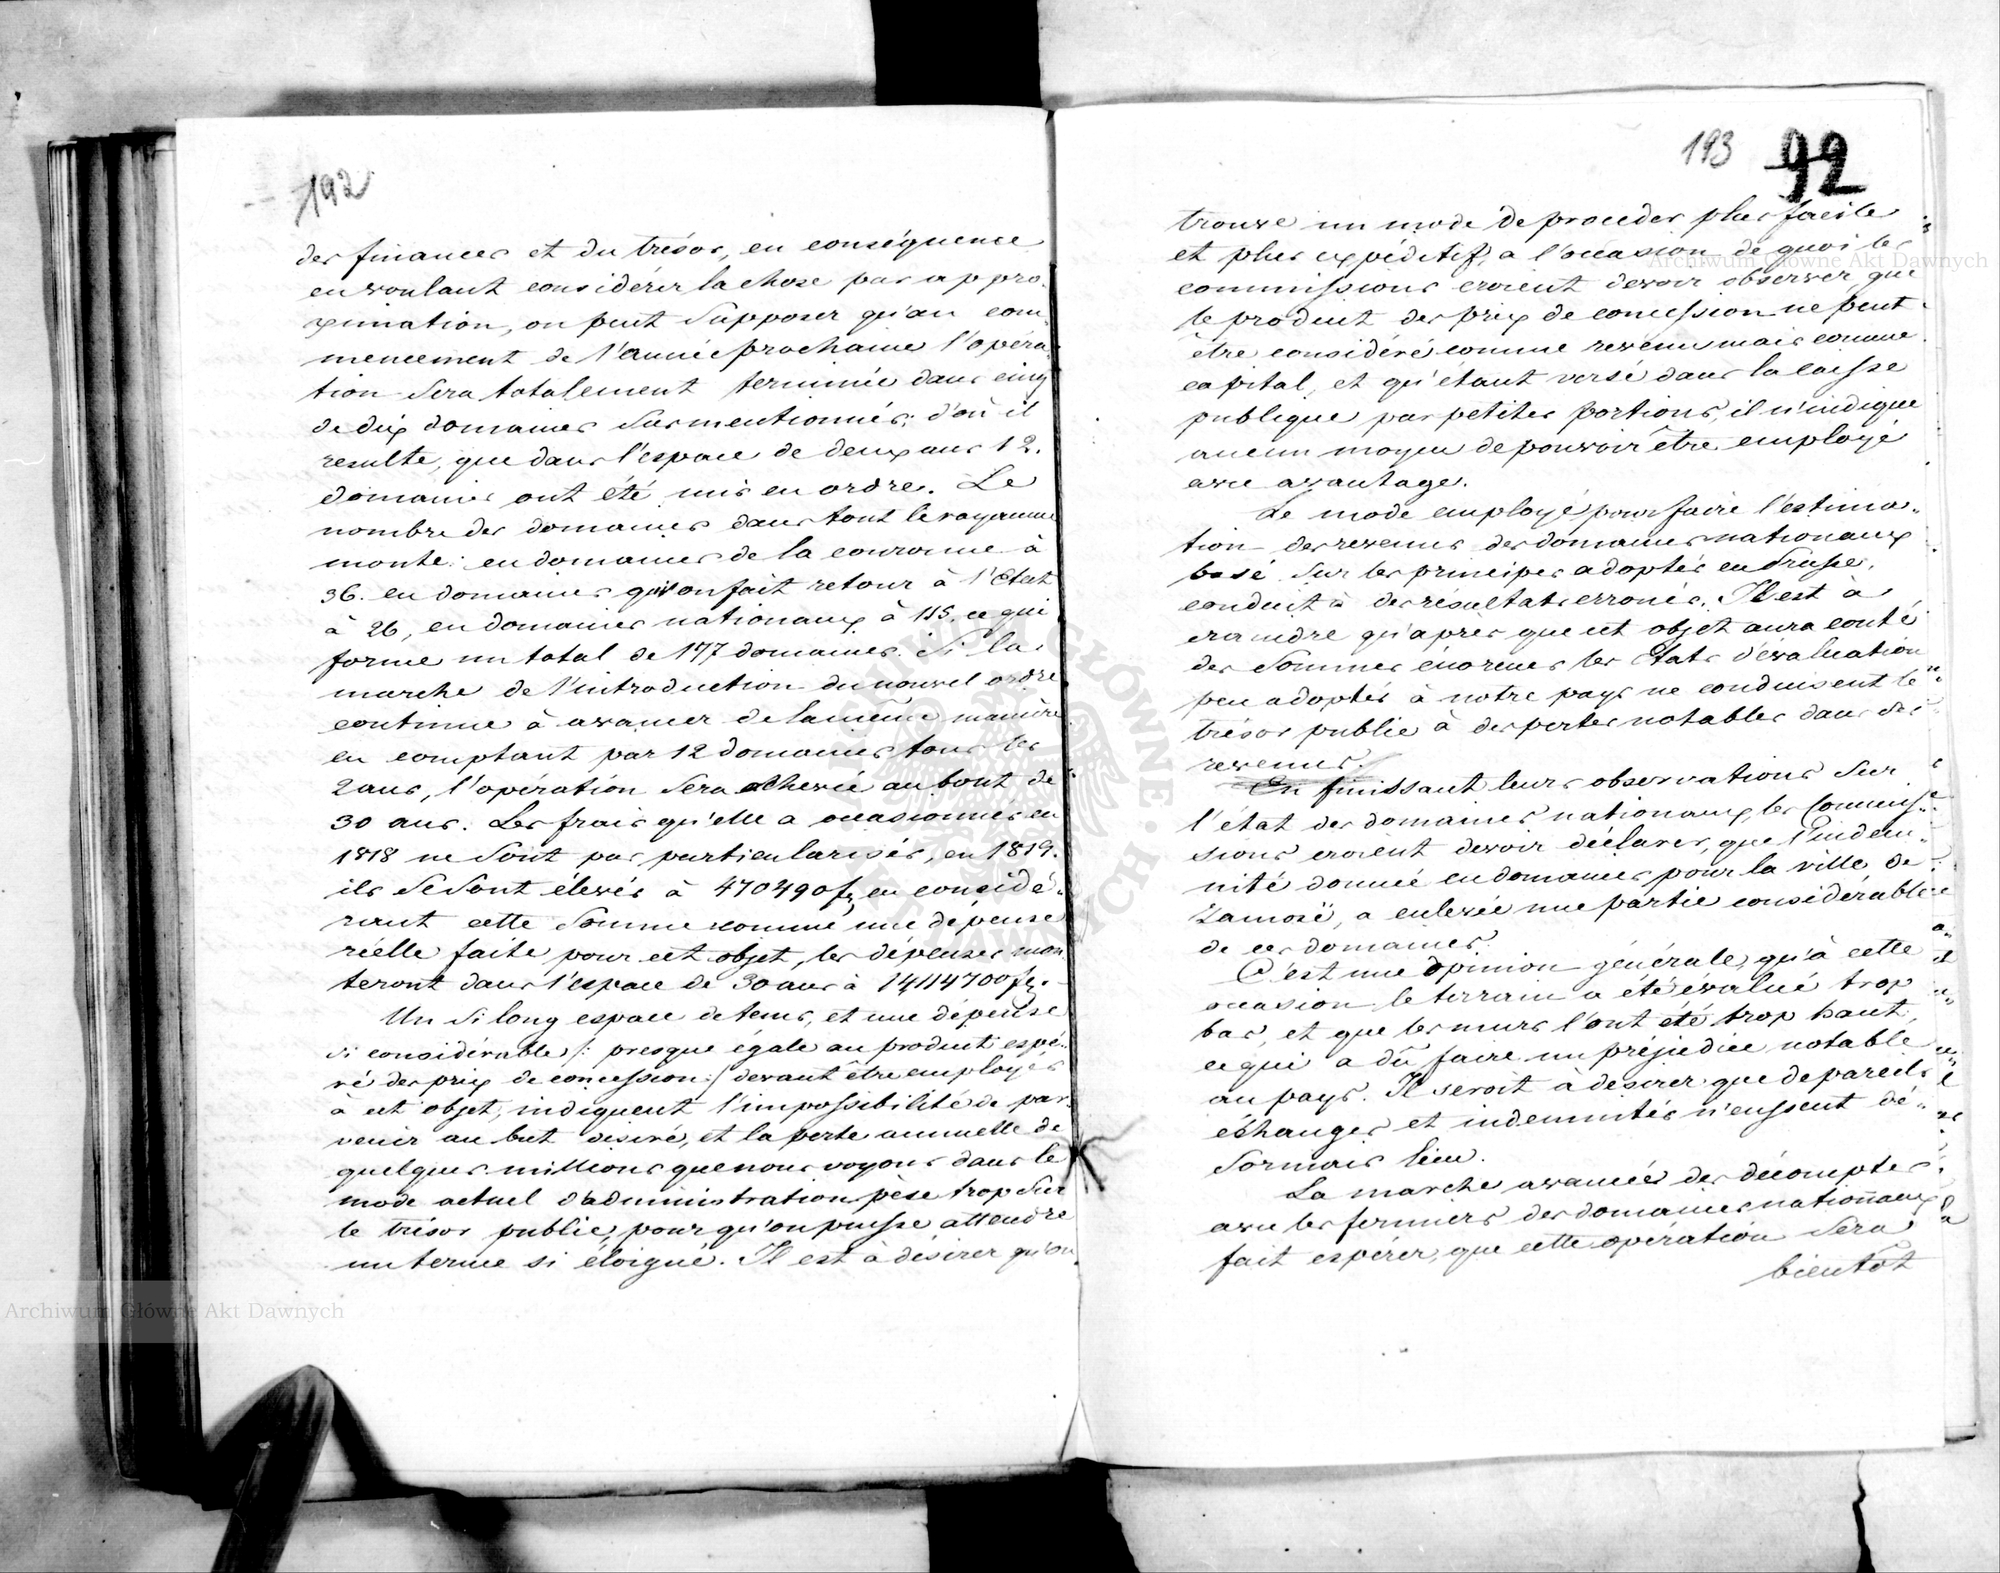 192
des finances et du trésor, en conséquence
en voulant considérer la chose par appro-
ximation, on peut supposer qu'au com-
mencement de l'année prochaine l'opéra-
tion sera totalement terminée dans cinq
de dix domaines susmentionnés; d'où il
resulte, que dans l'espace de deux ans 12.
domaines ont été mis en ordre. Le
nombre des domaines dans tout le royaume
monte: en domaines de la couronne à
36. en domaines qui ont fait retour à l'Etat
à 26, en domaines nationaux à 115. ce qui
forme un total de 177 domaines. Si la
marche de l'introduction du nouvel ordre
continue à avancer de la même manière
en comptant par 12 domaines tous les
2 ans, l'opération sera achevée au bout de
30 ans. Les frais qu'elle a occasionnés en
1818 ne sont pas particularisés, en 1819.
ils se sont élevés à 470490 fl, en considé-
rant cette somme comme une dépense
réelle faite pour cet objet, les dépenses mon
teront dans l'espace de 30 ans à 14114700 fl.
Un si long espace de tems, et une dépense
si considérable /: presque égale au produit espé-
ré des prix de concession :/ devant être employés
à cet objet, indiquent l'impossibilité de par-
venir au but desiré, et la perte annuelle de
quelques millions que nous voyons dans le
mode actuel d'administration pèse trop sur
le trésor public, pour qu'on puisse attendre
un terme si éloigné. Il est à désirer qu'on
193 92
trouve un mode de proceder plus facile
et plus expéditif, a l'occasion de quoi les
commissions croient devoir observer, que
le produit des prix de concession ne peut
être considéré comme revenu mais comme
capital, et qu'étant versé dans la caisse
publique par petites portions, il n'indique
aucun moyen de pouvoir être employé
avec avantage.
Le mode employé pour faire l'estima-
tion des revenus des domaines nationaux
basé sur les principes adoptés en Prusse,
conduit à des résultats erronés. Il est à
craindre qu'après que cet objet aura couté
des sommes énormes les Etats d'évaluation
peu adoptés à notre pays ne conduisent le
trésor public à des pertes notables dans ses
revenus.
En finissant leurs observations sur
l'état des domaines nationaux, les Commis-
sions croient devoir déclarer, que l'indem-
nité donnée en domaines pour la ville de
Zamość, a enlevée une partie considérable
de ces domaines.
C'est une opinion générale, qu'à cette
occasion le terrain a été évalué trop
bas, et que les murs l'ont été trop haut,
ce qui a dû faire un préjudice notable
au pays. Il seroit à desirer que de pareils
échanges et indemnités n'eussent dé-
sormais lieu.
La marche avancée des décomptes
avec les fermiers des domaines nationaux
fait espérer, que cette opération sera
bientôt
Archiwum Główne Akt Dawnych
Archiwum Główne Akt Dawnych